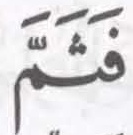 فَثَمَّ